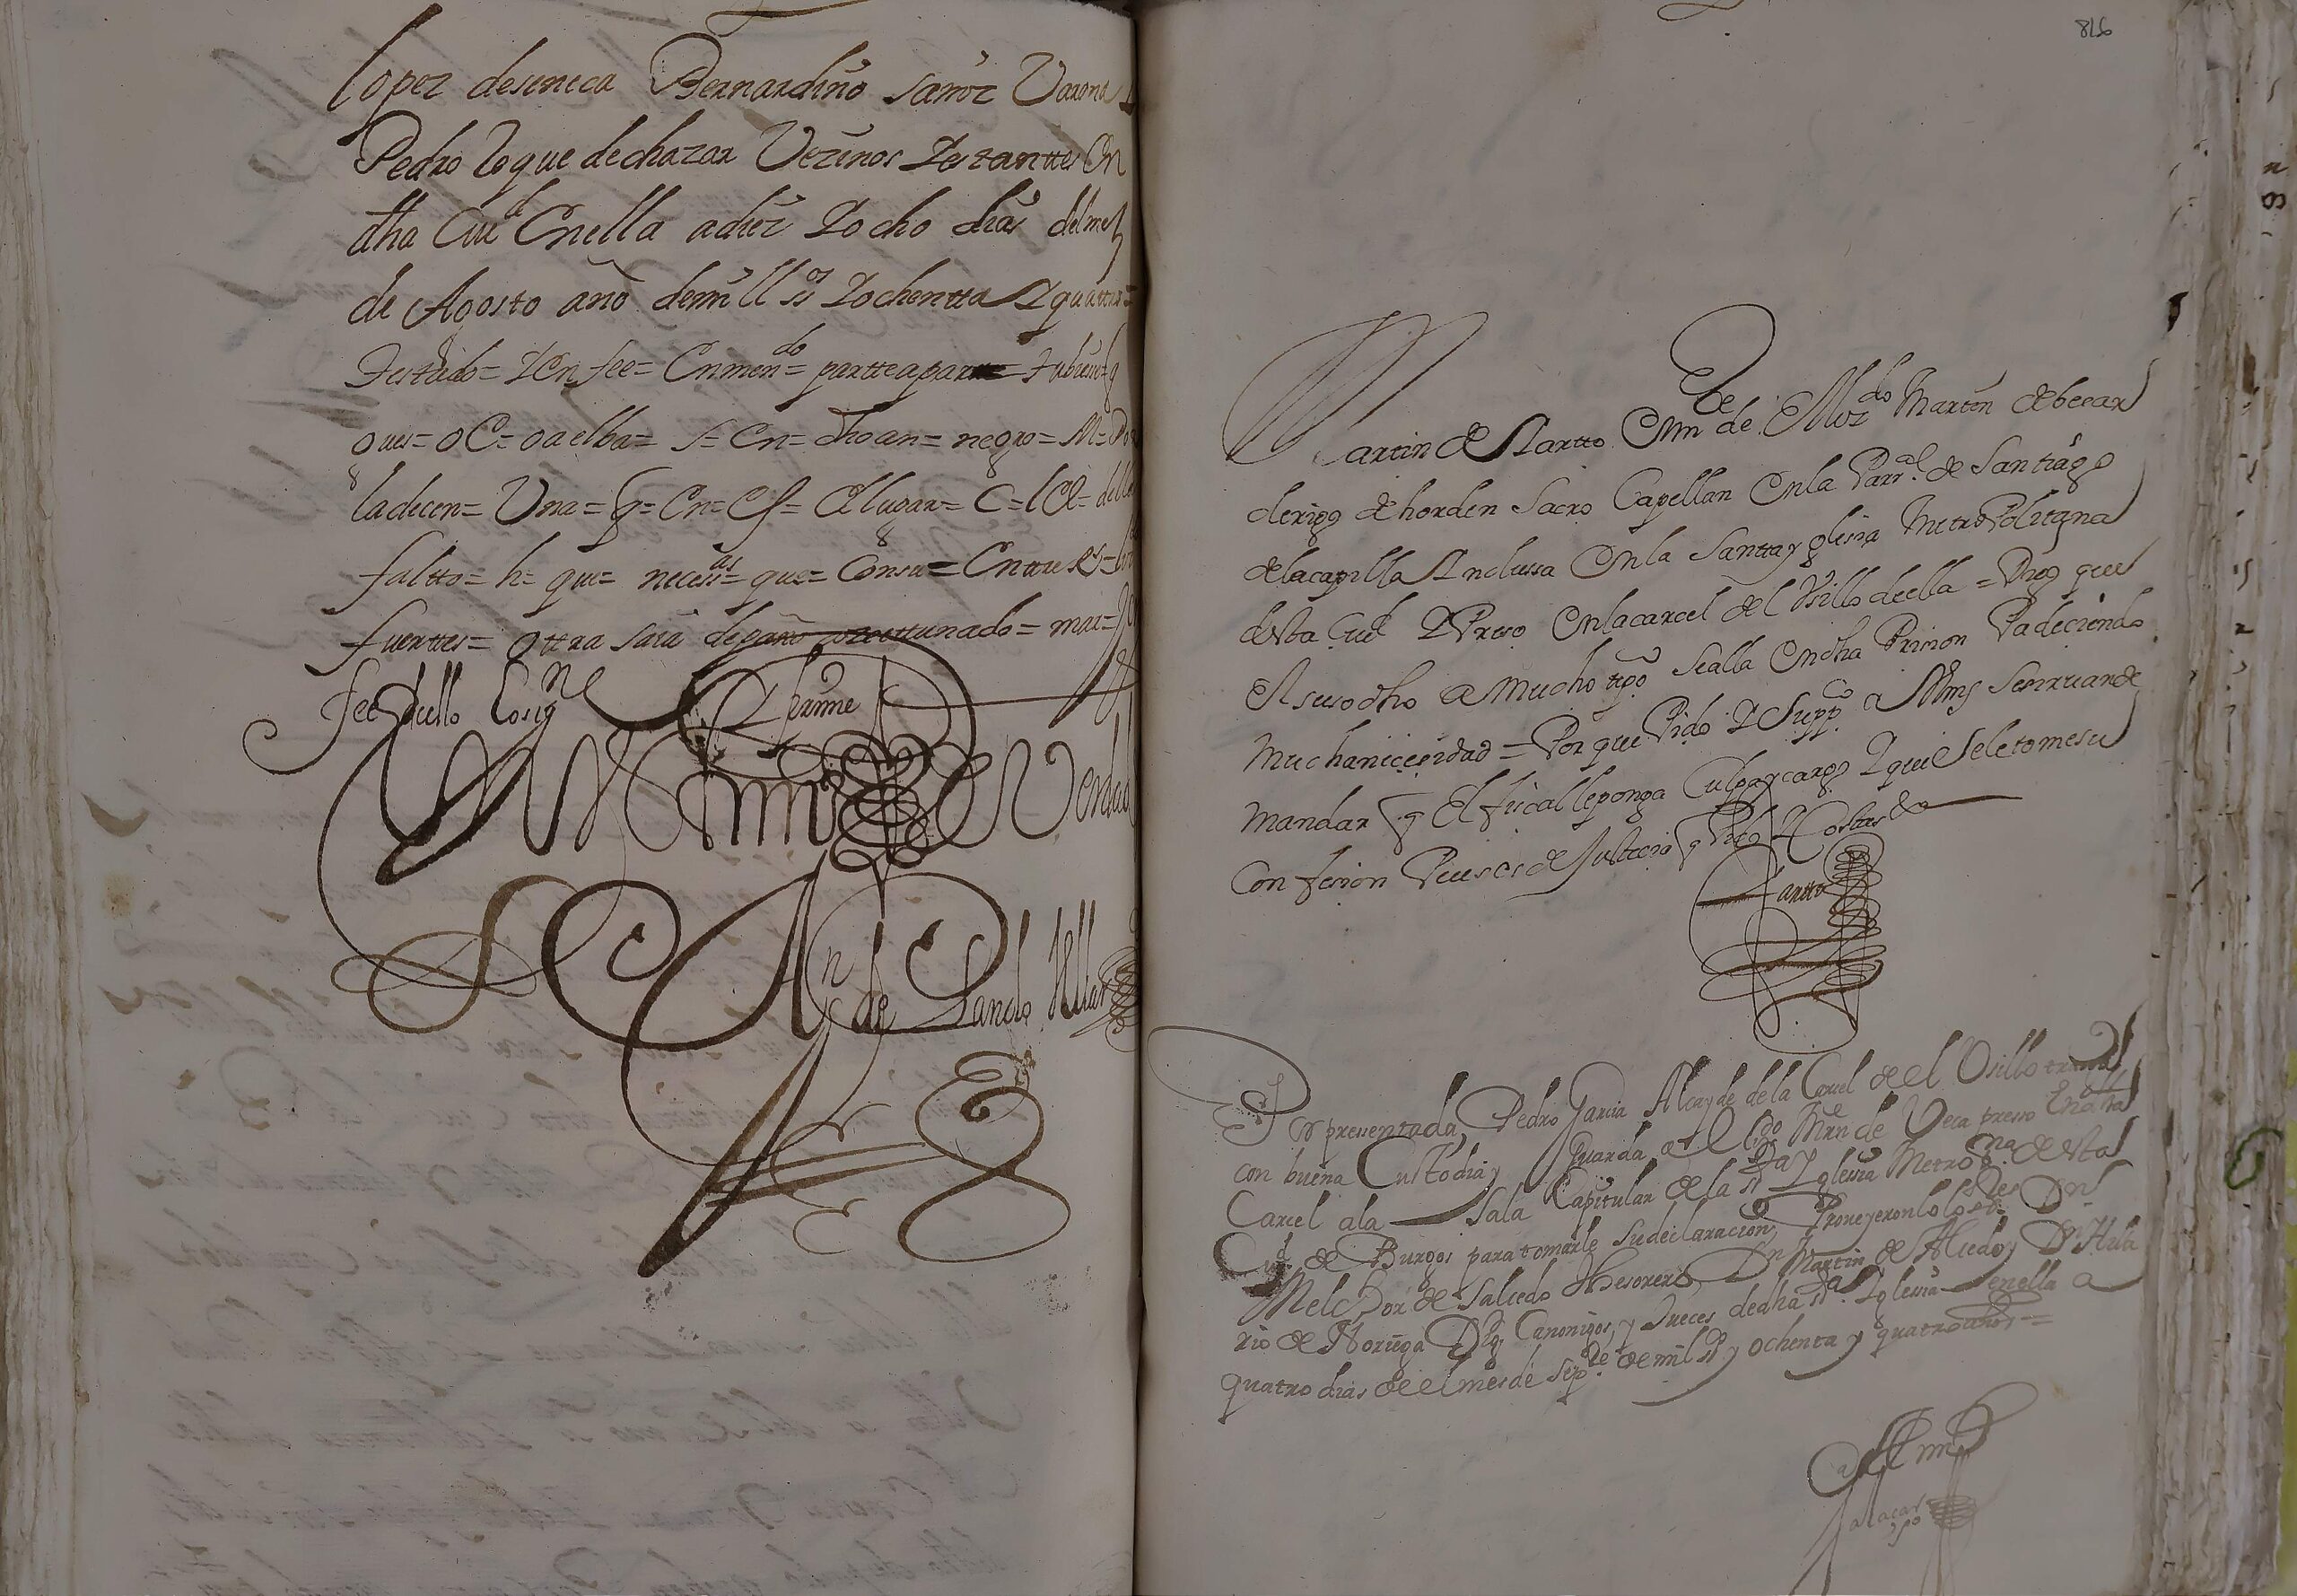 lopez deseneca Bernardino sanz Varona
Pedro Roque dechazar Vezinos Yestanttes En
dha Ciud Enella adiez Yocho dias delmes
de Agosto año demill ss Yochentta Yquattro
Testado= YEn fee= Enmendo= partteaparte=
oues= oC= oaelba= s= En= dhoan= negro= M=
ladecen= Una= q= En= El= Allugar= C= lCl=
faltto= h= que= necess as= que= Consu= Enttre Rs=
fuerttes= ottra saia depaño = mas=
fee dello lo sig ne y firme
En testimo de Verdad
An de Sancho Villar
816
Martin de Yartto Enn de el Lizdo Martin debecar
clerigo de horden Sacro Capellan Enla Parral de Santiago
delacapilla Ynclussa Enla Santtayglesia MetroPolitana
desta Ciud Y Preso Enlacarcel del Usillo deella = Digo que
El susodho a Mucho tipo sealla Endha Prision Padeciendo
Muchanicesidad = Por que Pido Y Suppco a Vms Sesiruande
Mandar q El fiscal leponga Culpaycargo Y que Seletomesu
Confesion Pues es de Justicia q Pido Y Costas &a
Yartto
Por presentada, Pedro Garcia Alcayde dela Carcel de el Usillo traiga
con buena Custodia y Guarda a el Lizdo Mrn de Veca presso En dha
Carcel ala Sala Capitular de la sta Yglesia Metropna de esta
Ciud de Burgos para tomarle su declaracion, Proueyeronlo los ss res Dn
Melchor de Salcedo thesorero, Dn Martin de Alcedo, y Dn Hila
rio de Noriega Dig Canonigos, y Jueces dedha sta Yglesia enella a
quatro dias de el mes de sepre de mil ss y ochenta y quatro años =
Ante mi